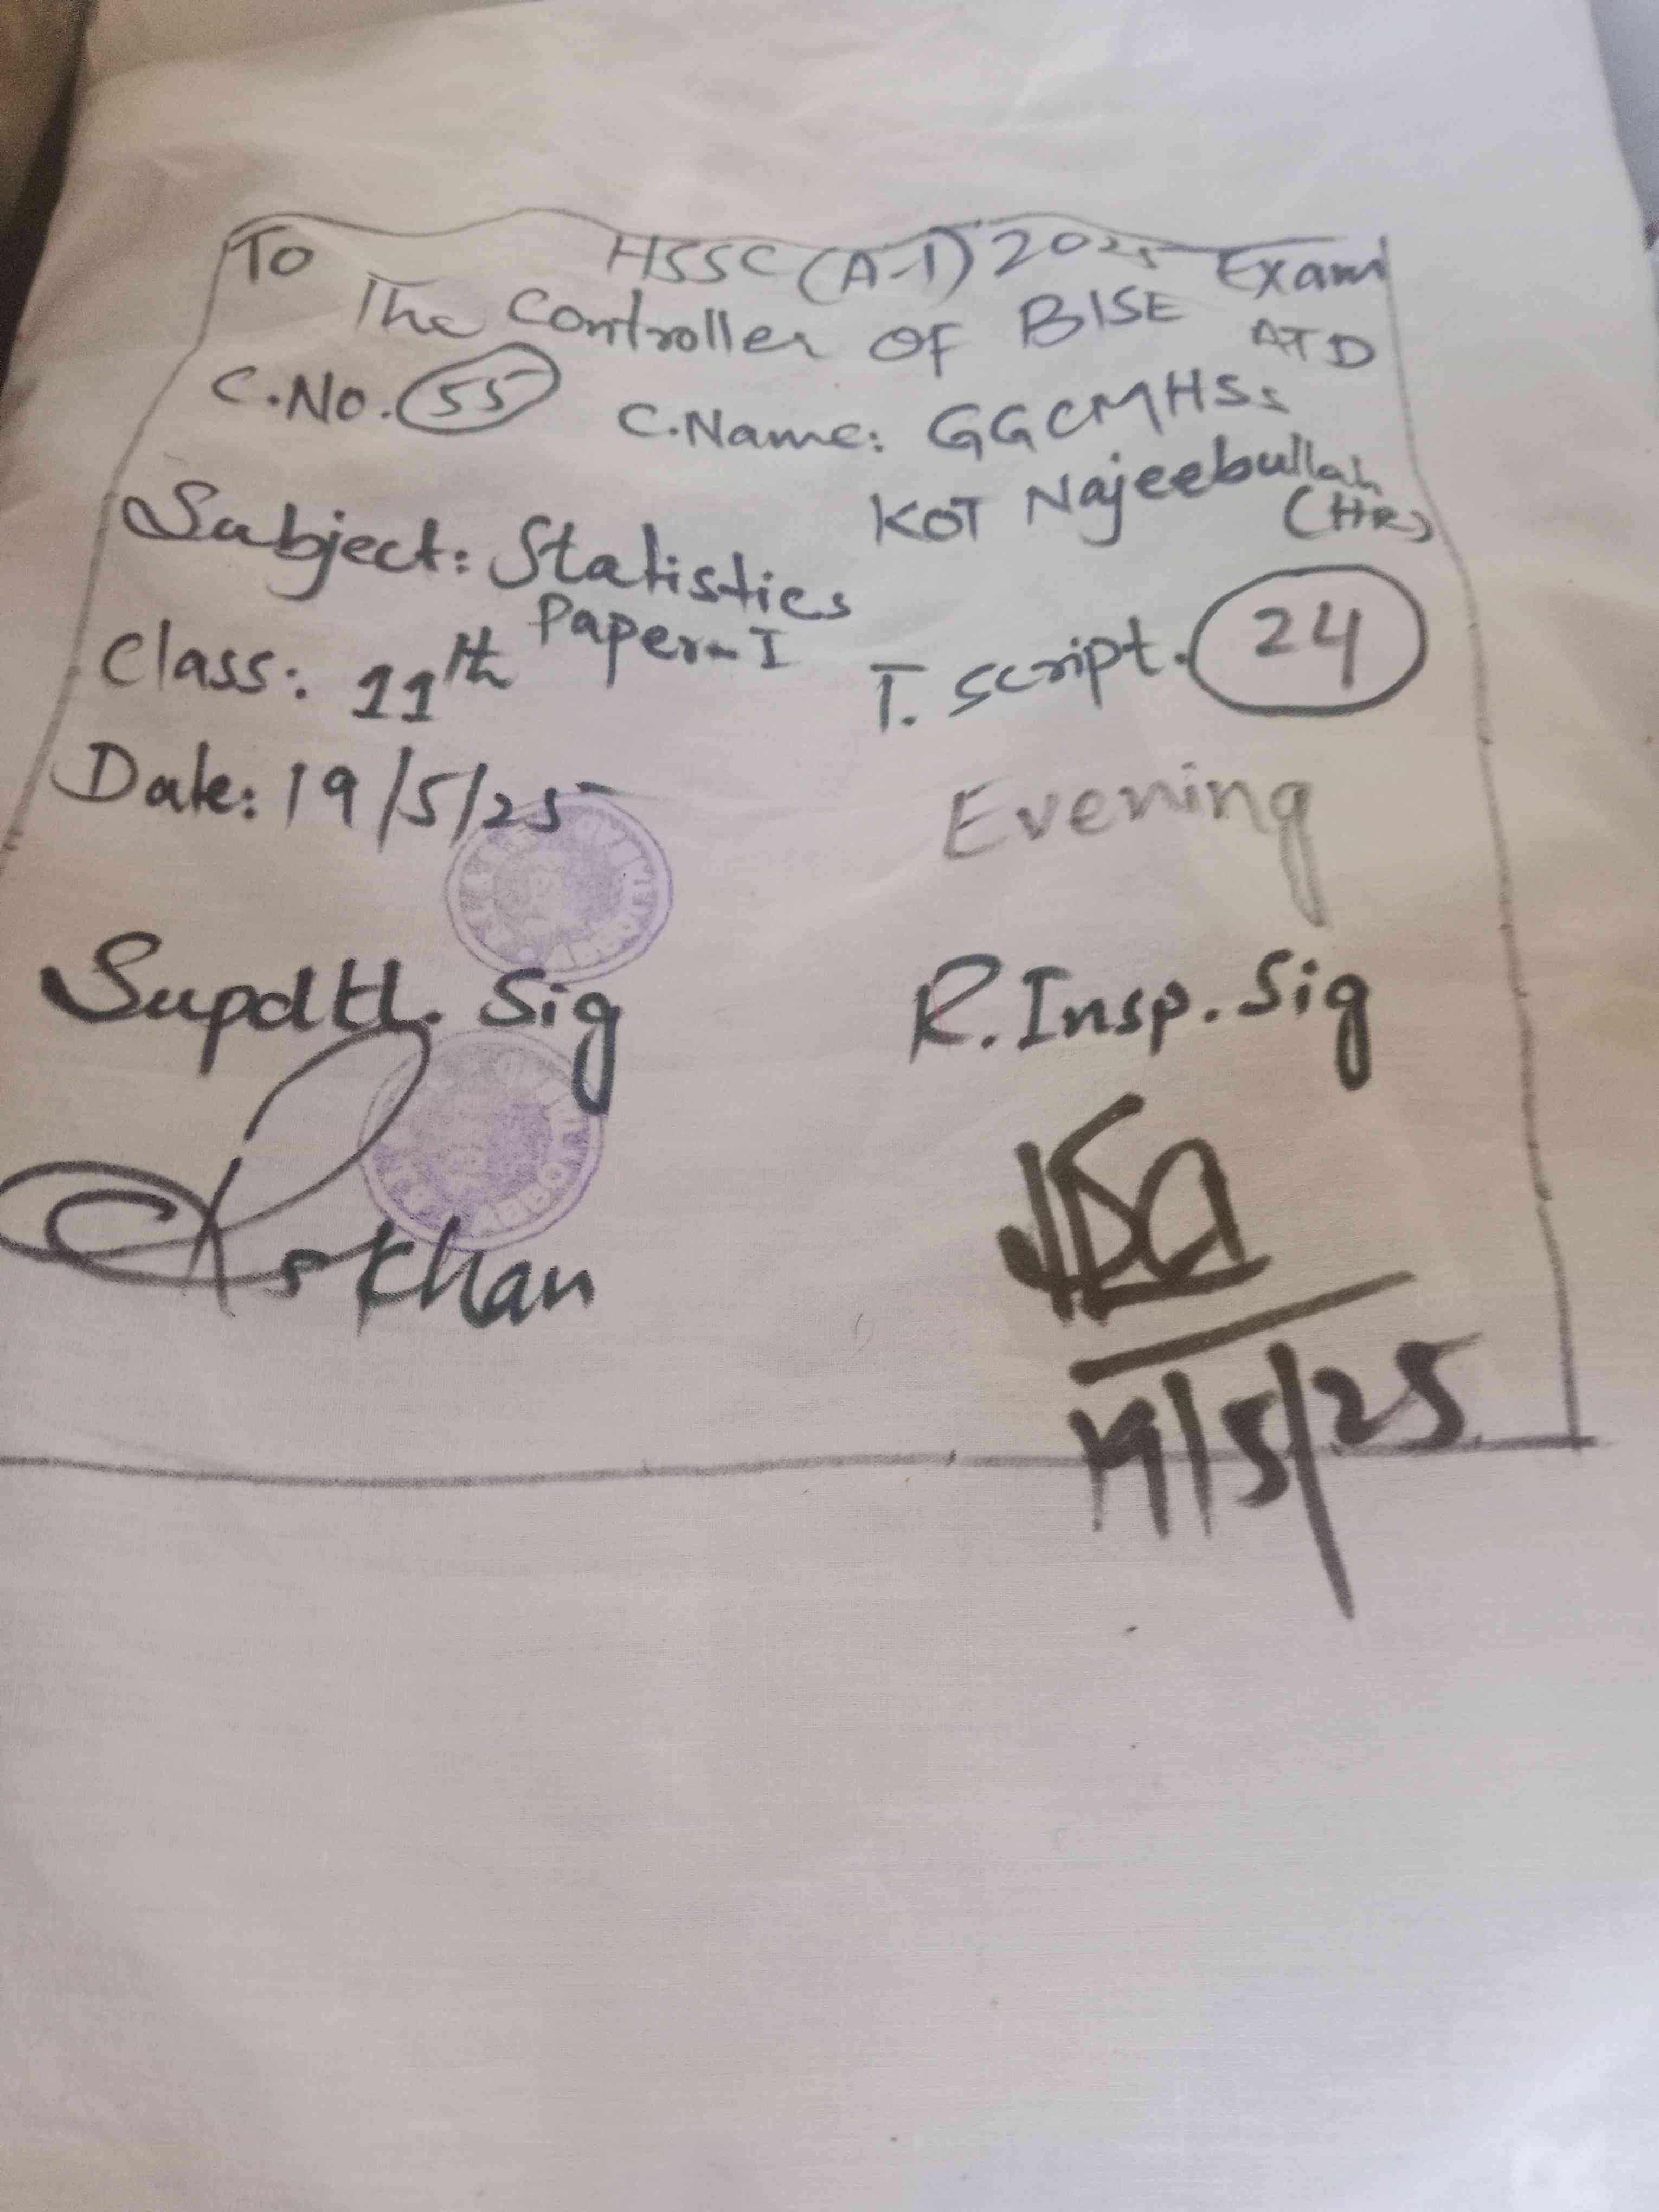 To HSSC (A-I) 2025 Exam
The Controller OF BISE ATD
C.No. 55 C.Name: GGCMHSS
KOT Najeebullah
(HR)
Subject: Statistics
Paper-I
Class: 11th T. Script. 24
Date: 19/5/25 Evening
Supdtt. Sig R.Insp. Sig
Khan
19/5/25